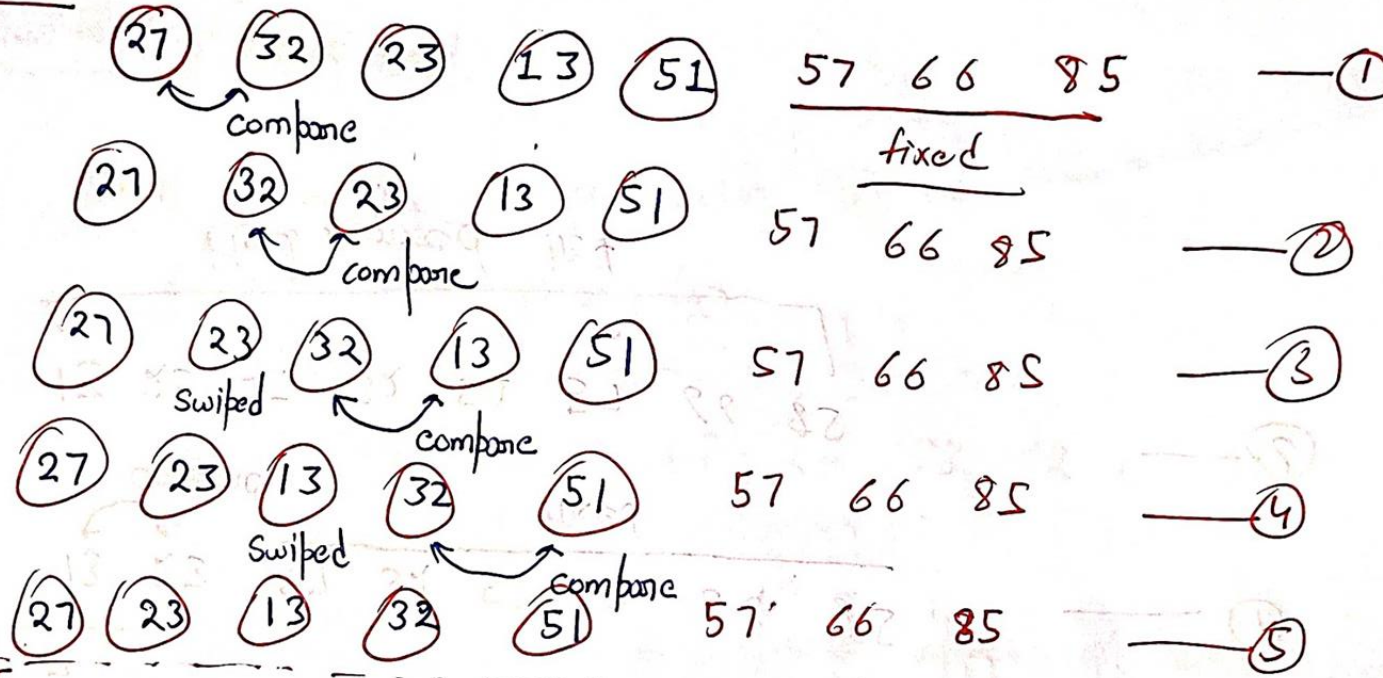 27 32 23 13 51 57 66 85 — 1
compare
fixed
27 32 23 13 51 57 66 85 — 2
compare
27 23 32 13 51 57 66 85 — 3
Swiped
compare
27 23 13 32 51 57 66 85 — 4
Swiped
compare
27 23 13 32 51 57 66 85 — 5